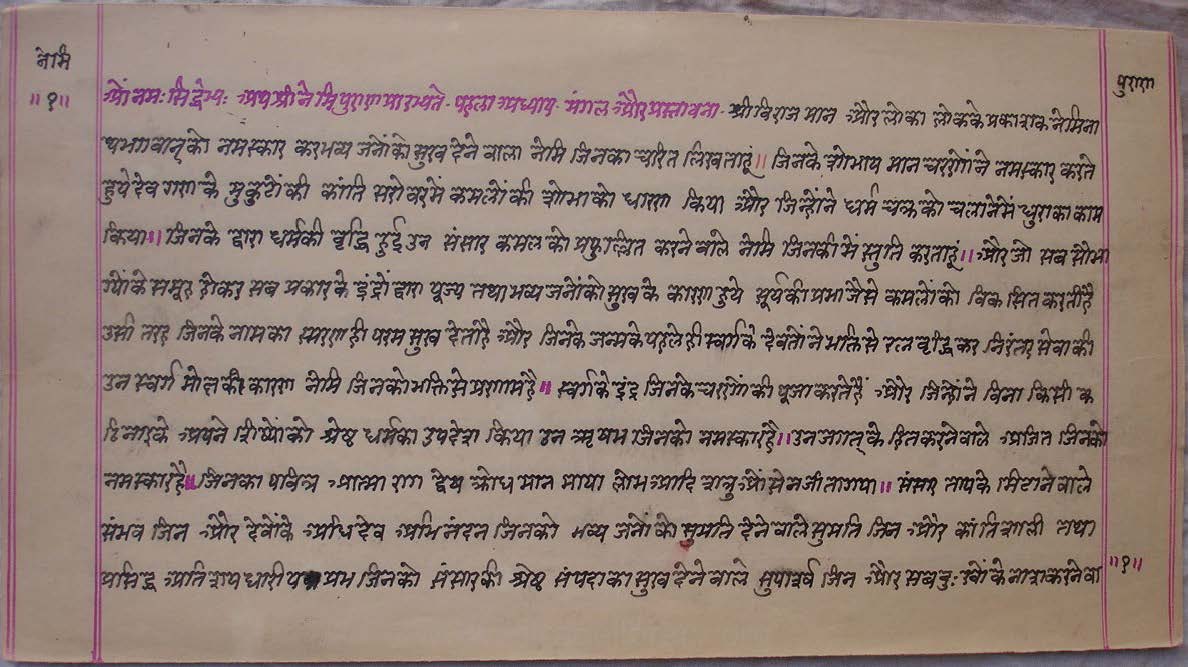 नेमि
॥१॥
पुराण
ओं नमः सिद्धेभ्यः अथ श्री नेमिपुराण प्रारभ्यते. पहला अध्याय. मंगल और प्रस्तावना. श्री विराजमान और लोका लोकके प्रकाशक नेमिना
थ भगवान्‌को नमस्कार कर भव्य जनोंको सुख देने वाला नेमि जिनका चरित लिखताहूं॥ जिनके शोभाय मान चरणोंने नमस्कार करते
हुये देव गण के मुकुटों की कांति सरोवरमें कमलों की शोभाको धारण किया और जिन्होंने धर्म चक्रको चलानेमें धुराका काम
किया॥ जिनके द्वारा धर्मकी वृद्धि हुई उन संसार कमल को प्रफुल्लित करने वाले नेमि जिनकी में स्तुति करताहूं॥ और जो सब सौभा
ग्योंके समूह होकर सब प्रकारके इंद्रों द्वारा पूज्य तथा भव्य जनोंको सुख के कारण हुये सूर्यकी प्रभा जैसे कमलोंको विकसित करतीहै
उसी तरह जिनके नामका स्मरण ही परम सुख देताहै और जिनके जन्मके पहले ही स्वर्ग के देवतोंने भक्तिसे रत्न वृष्टि कर निरंतर सेवा की
उन स्वर्ग मोक्षकी कारण नेमि जिनको भक्तिसे प्रणामहै॥ स्वर्गके इंद्र जिनके चरणोंकी पूजा करतेहैं और जिन्होंने विना किसी क
ठिनाईके अपने शिष्योंको श्रेष्ठ धर्मका उपदेश किया उन ऋषभ जिनको नमस्कारहै॥ उन जगत्‌के हित करनेवाले अजित जिनको
नमस्कारहै॥ जिनका पवित्र आत्मा राग द्वेष क्रोध मान माया लोभ आदि शत्रुओंसे न जीता गया॥ संसार तापके मिटाने वाले
संभव जिन और देवोंके अधिदेव अभिनंदन जिनको भव्य जनोंको सुमति देने वाले सुमति जिन और कांति शाली तथा
प्रसिद्ध अतिशय धारी प प्रभ जिनको संसारकी श्रेष्ठ संपदाका सुख देने वाले सुपार्श्व जिन और सब दुःखोंके नाश करनेवा
॥१॥